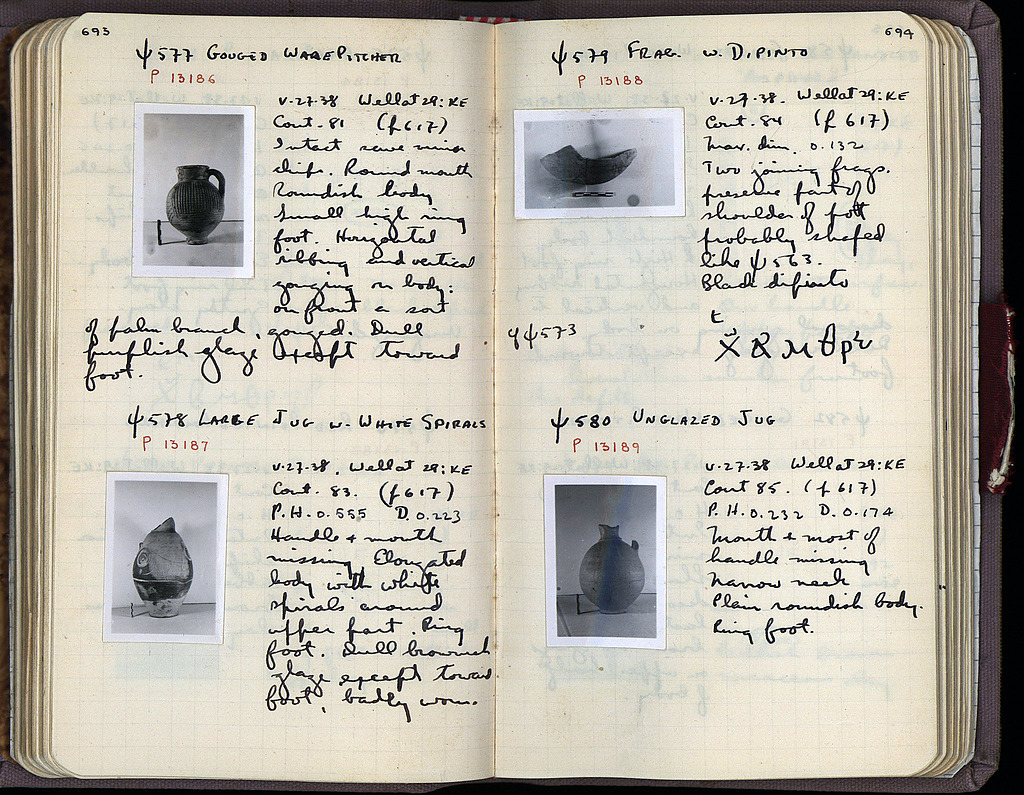 693
Ψ577 GOUGED WARE PITCHER
P 13186
V-27-38 Well at 29:ΚΕ
Cont. 81 (f 617)
Intact save minor
chips. Round mouth
Roundish body
Small high ring
foot. Horizontal
ribbing and vertical
gouging on body:
on front a sort
of palm branch gouged. Dull
purplish glaze except toward
foot.
Ψ578 LARGE JUG W. WHITE SPIRALS
P 13187
V-27-38, Well at 29:ΚΕ
Cont. 83. (f 617)
P.H. 0.555 D. 0.223
Handle + mouth
missing Elongated
body with white
spirals around
upper part. Ring
foot. Dull brownish
glaze except toward
foot, badly worn.
694
Ψ579 FRAG. W. DIPINTO
P 13188
V-27-38. Well at 29:ΚΕ
Cont. 84 (f 617)
Max. dim. 0.132
Two joining frags.
preserve part of
shoulder of pot
probably shaped
like Ψ563.
Black dipinto
Ψ573
Ψ580 UNGLAZED JUG
P 13189
V-27-38 Well at 29:ΚΕ
Cont 85. (f 617)
P.H. 0.232 D. 0.174
Mouth + most of
handle missing
Narrow neck
Plain roundish body.
Ring foot.